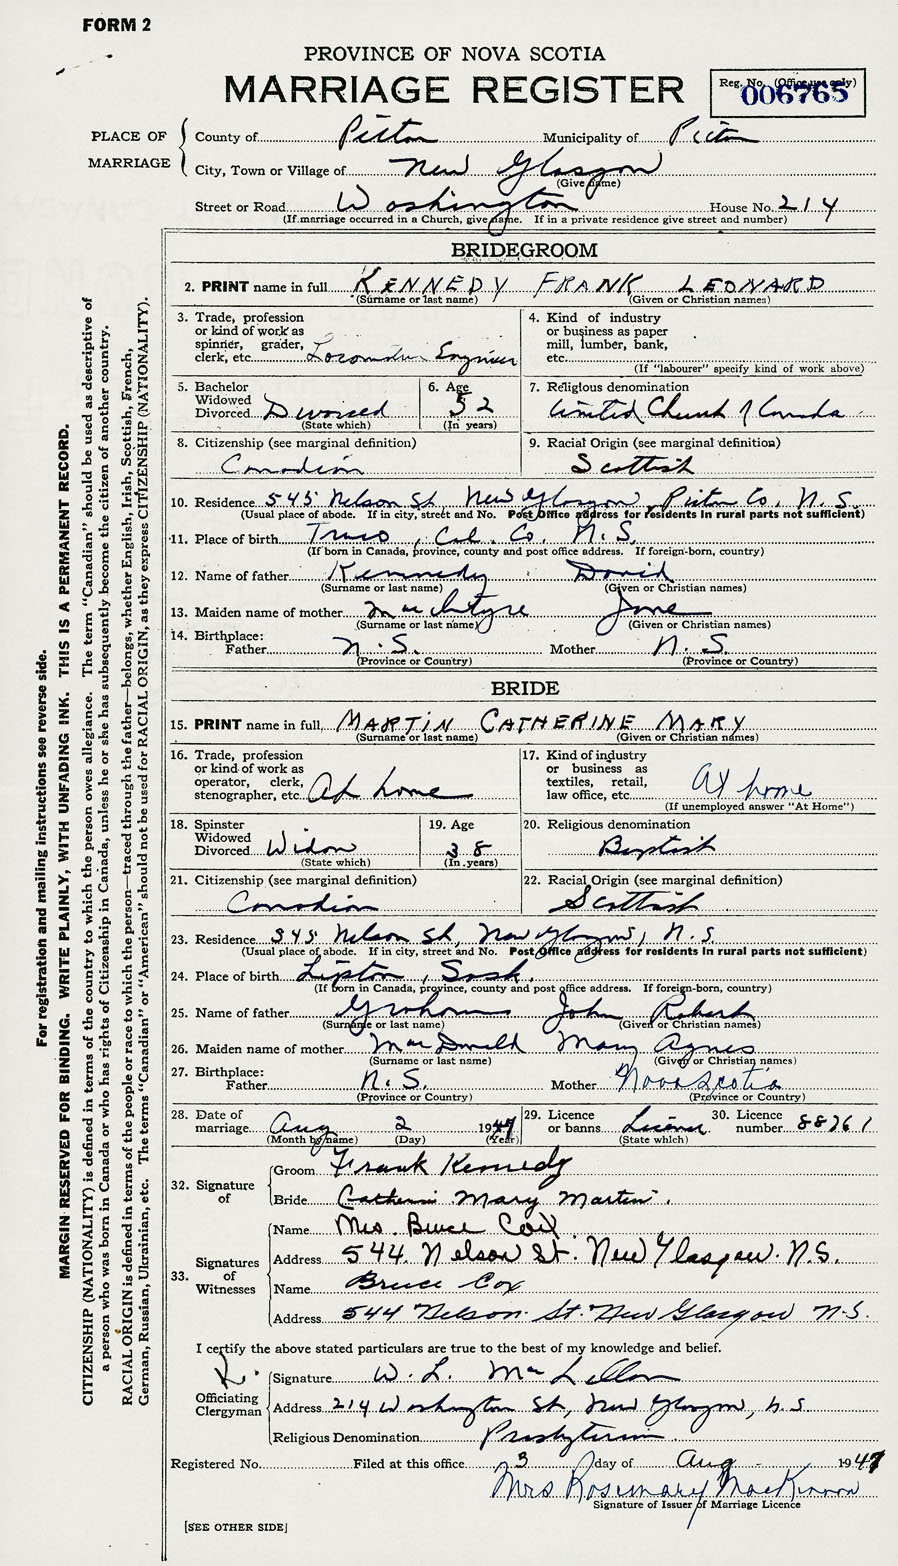 FORM 2
PROVINCE OF NOVA SCOTIA
MARRIAGE REGISTER
Reg. No. (Office use only)
006765
PLACE OF MARRIAGE
County of Pictou Municipality of Pictou
City, Town or Village of New Glasgow
(Give name)
Street or Road Washington House No. 214
(If marriage occurred in a Church, give name. If in a private residence give street and number)
BRIDEGROOM
2. PRINT name in full KENNEDY FRANK LEONARD
(Surname or last name) (Given or Christian names)
3. Trade, profession or kind of work as spinner, grader, clerk, etc. Locomotive Engineer
4. Kind of industry or business as paper mill, lumber, bank, etc.
(If "labourer" specify kind of work above)
5. Bachelor Widowed Divorced Divorced
(State which)
6. Age 52
(In years)
7. Religious denomination
United Church of Canada
8. Citizenship (see marginal definition)
Canadian
9. Racial Origin (see marginal definition)
Scottish
10. Residence 545 Nelson St, New Glasgow, Pictou Co, N.S.
(Usual place of abode. If in city, street and No. Post Office address for residents in rural parts not sufficient)
11. Place of birth Truro, Col. Co. N.S.
(If born in Canada, province, county and post office address. If foreign-born, country)
12. Name of father Kennedy David
(Surname or last name) (Given or Christian names)
13. Maiden name of mother MacIntyre Jane
(Surname or last name) (Given or Christian names)
14. Birthplace:
Father N.S. Mother N.S.
(Province or Country) (Province or Country)
BRIDE
15. PRINT name in full MARTIN CATHERINE MARY
(Surname or last name) (Given or Christian names)
16. Trade, profession or kind of work as operator, clerk, stenographer, etc. At home
17. Kind of industry or business as textiles, retail, law office, etc. At home
(If unemployed answer "At Home")
18. Spinster Widowed Divorced Widow
(State which)
19. Age
38
(In years)
20. Religious denomination
Baptist
21. Citizenship (see marginal definition)
Canadian
22. Racial Origin (see marginal definition)
Scottish
23. Residence 545 Nelson St, New Glasgow, N.S.
(Usual place of abode. If in city, street and No. Post Office address for residents in rural parts not sufficient)
24. Place of birth Lipton, Sask.
(If born in Canada, province, county and post office address. If foreign-born, country)
25. Name of father Graham John Robert
(Surname or last name) (Given or Christian names)
26. Maiden name of mother MacDonald Mary Agnes
(Surname or last name) (Given or Christian names)
27. Birthplace:
Father N.S. Mother Nova Scotia
(Province or Country) (Province or Country)
28. Date of marriage Aug 2 1947
(Month by name) (Day) (Year)
29. Licence or banns License
(State which)
30. Licence number 88261
32. Signature of
Groom Frank Kennedy
Bride Catherine Mary Martin.
33. Signatures of Witnesses
Name Mrs. Bruce
Address 544. Nelson St. New Glasgow. N.S.
Name Bruce Cox
Address 544 Nelson St. New Glasgow N.S.
I certify the above stated particulars are true to the best of my knowledge and belief.
Officiating Clergyman
Signature W. L. MacLellan
Address 214 Washington St, New Glasgow, N.S
Religious Denomination Presbyterian
Registered No. Filed at this office 3 day of Aug 1947
Mrs Rosemary MacKinnon
Signature of Issuer of Marriage Licence
[SEE OTHER SIDE]
For registration and mailing instructions see reverse side.
MARGIN RESERVED FOR BINDING. WRITE PLAINLY, WITH UNFADING INK. THIS IS A PERMANENT RECORD.
CITIZENSHIP (NATIONALITY) is defined in terms of the country to which the person owes allegiance. The term "Canadian" should be used as descriptive of
a person who was born in Canada or who has rights of Citizenship in Canada, unless he or she has subsequently become the citizen of another country.
RACIAL ORIGIN is defined in terms of the people or race to which the person—traced through the father—belongs, whether English, Irish, Scottish, French,
German, Russian, Ukrainian, etc. The terms "Canadian" or "American" should not be used for RACIAL ORIGIN, as they express CITIZENSHIP (NATIONALITY).